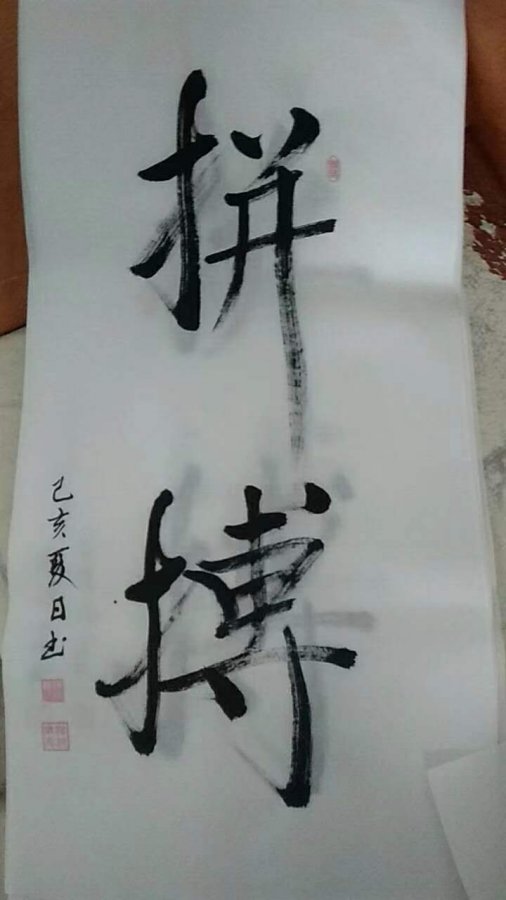 拼搏
己亥夏日书